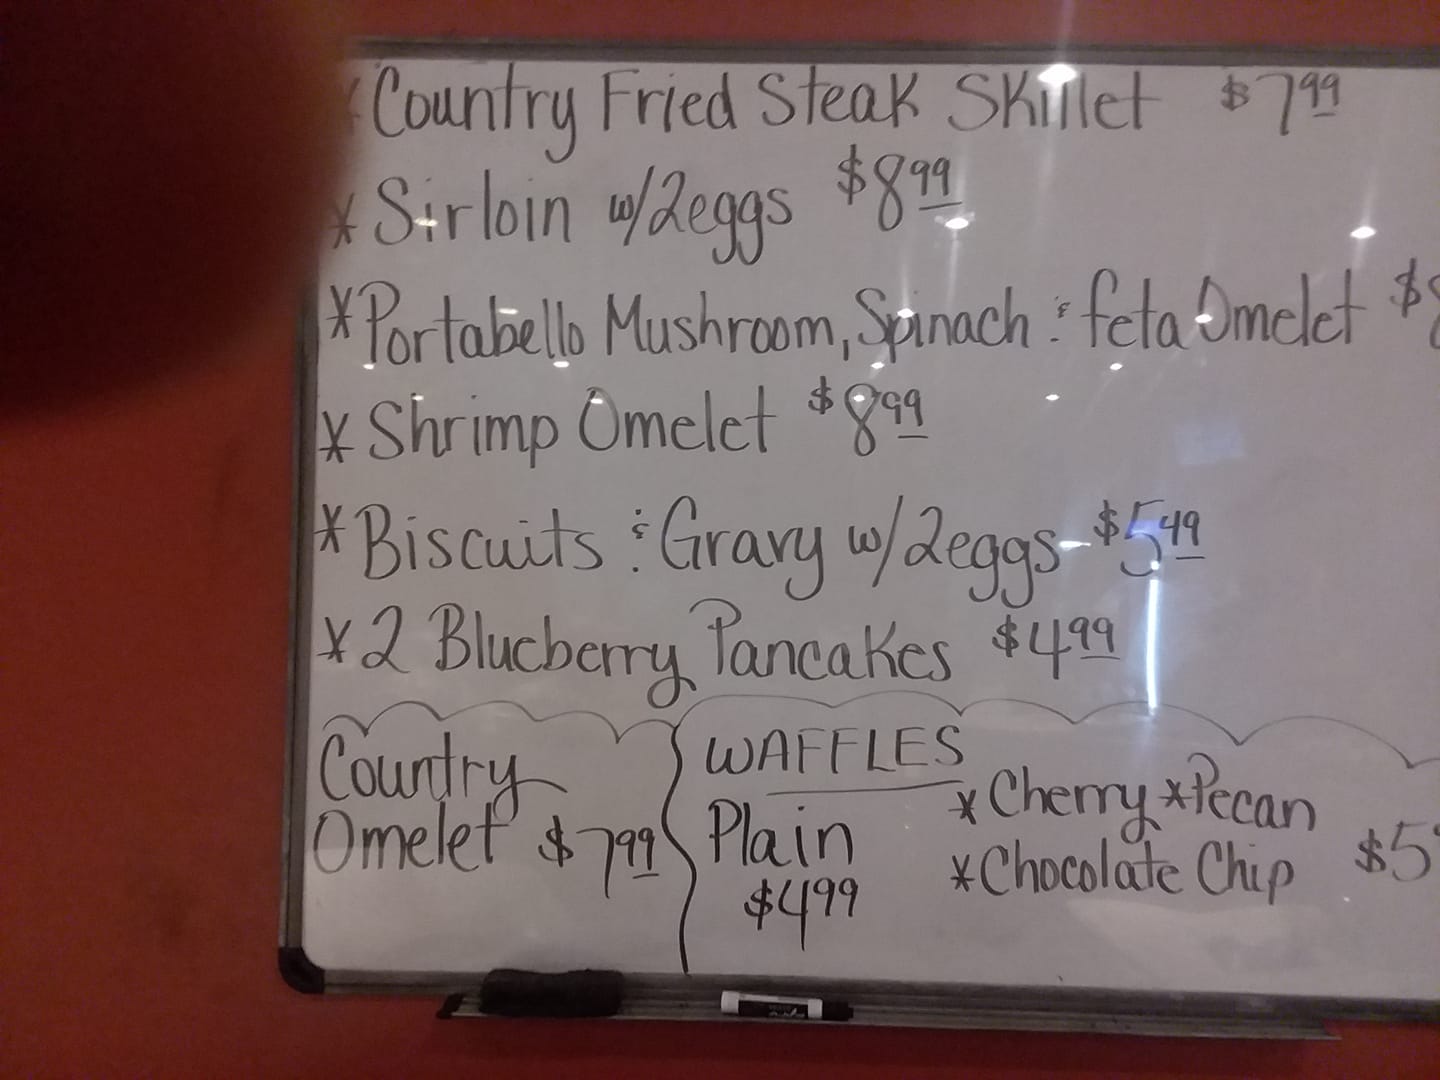 * Country Fried Steak Skillet $7.99
* Sirloin w/2eggs $8.99
* Portabello Mushroom, Spinach & feta Omelet $8
* Shrimp Omelet $8.99
* Biscuits & Gravy w/2eggs - $5.49
* 2 Blueberry Pancakes $4.99
Country
Omelet $7.99
WAFFLES
Plain
$4.99
* Cherry * Pecan
* Chocolate Chip $5